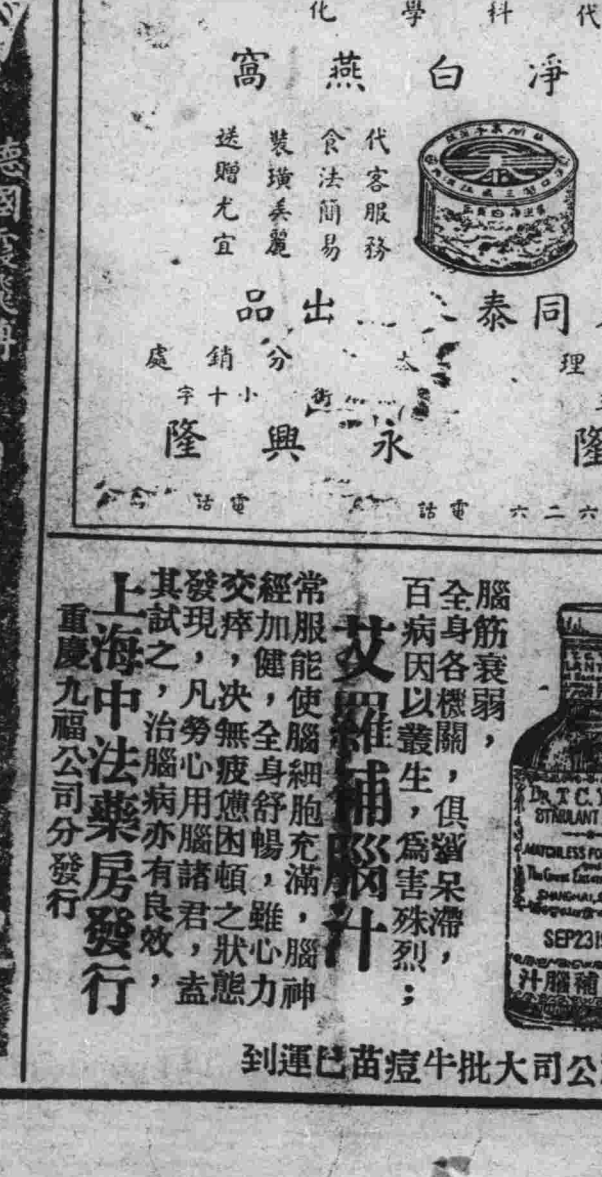 代科學化
淨白燕窩
代客服務
食法簡易
裝璜美麗
送贈尤宜
同泰
出品
理
分銷處
街
小十字
隆
永興隆
六二六
電話
電話
腦筋衰弱，
全身各機關，俱呆滯，
百病因以叢生，爲害殊烈；
艾羅補腦汁
常服能使腦細胞充滿，腦神
經加健，全身舒暢，雖心力
交瘁，決無疲憊困頓之狀態
發現，凡勞心用腦諸君，盍
其試之，治腦病亦有良效，
上海中法藥房發行
重慶九福公司分發行
DR. T. C.
STIMULANT
MATCHLESS
SHANGHAI
SEP 23
補腦汁
公司大批牛痘苗已運到
德國